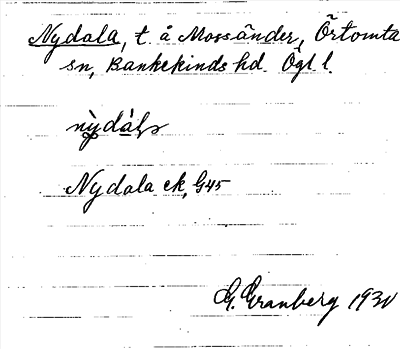 Nydala, t. å Mossänder, Örtomta
sn, Bankekinds hd. Ögl l.
Nydala ek, G45
G. Granberg